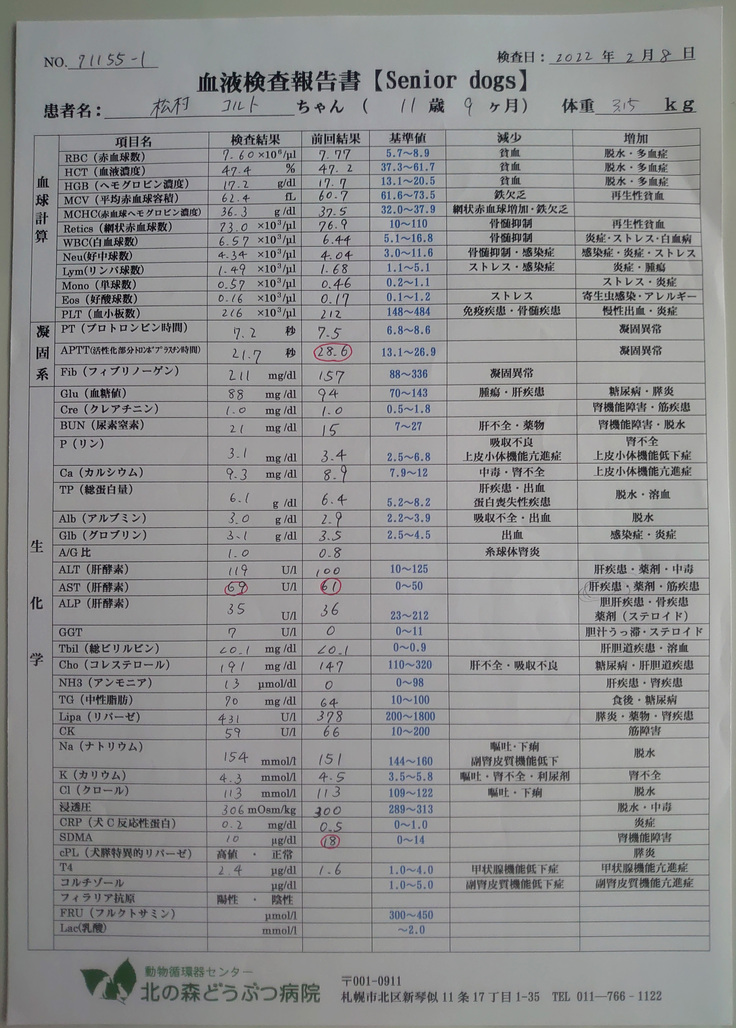 NO. 71155-1
検査日：2022年2月8日
血液検査報告書【Senior dogs】
患者名： 松村 コルト ちゃん （ 11歳 9ヶ月） 体重 3.15 kg
項目名 検査結果 前回結果 基準値 減少 増加
血球計算
RBC（赤血球数） 7.60 ×10⁶/μl 7.77 5.7〜8.9 貧血 脱水・多血症
HCT（血液濃度） 47.4 % 47.2 37.3〜61.7 貧血 脱水・多血症
HGB（ヘモグロビン濃度） 17.2 g/dl 17.7 13.1〜20.5 貧血 脱水・多血症
MCV（平均赤血球容積） 62.4 fL 60.7 61.6〜73.5 鉄欠乏 再生性貧血
MCHC(赤血球ヘモグロビン濃度) 36.3 g/dl 37.5 32.0〜37.9 網状赤血球増加・鉄欠乏
Retics（網状赤血球数） 73.0 ×10³/μl 76.9 10〜110 骨髄抑制 再生性貧血
WBC(白血球数) 6.57 ×10³/μl 6.44 5.1〜16.8 骨髄抑制 炎症・ストレス・白血病
Neu(好中球数) 4.34 ×10³/μl 4.04 3.0〜11.6 骨髄抑制・感染症 感染症・炎症・ストレス
Lym(リンパ球数) 1.49 ×10³/μl 1.68 1.1〜5.1 ストレス・感染症 炎症・腫瘍
Mono（単球数） 0.57 ×10³/μl 0.46 0.2〜1.1 ストレス・炎症
Eos（好酸球数） 0.16 ×10³/μl 0.17 0.1〜1.2 ストレス 寄生虫感染・アレルギー
PLT（血小板数） 216 ×10³/μl 212 148〜484 免疫疾患・骨髄疾患 慢性出血・炎症
凝固系
PT（プロトロンビン時間） 7.2 秒 7.5 6.8〜8.6 凝固異常
APTT(活性化部分トロンボプラスチン時間) 21.7 秒 28.6 13.1〜26.9 凝固異常
Fib（フィブリノーゲン） 211 mg/dl 157 88〜336 凝固異常
生化学
Glu（血糖値） 88 mg/dl 94 70〜143 腫瘍・肝疾患 糖尿病・膵炎
Cre（クレアチニン） 1.0 mg/dl 1.0 0.5〜1.8 腎機能障害・筋疾患
BUN（尿素窒素） 21 mg/dl 15 7〜27 肝不全・薬物 腎機能障害・脱水
P（リン） 3.1 mg/dl 3.4 2.5〜6.8 吸収不良 上皮小体機能亢進症 腎不全 上皮小体機能低下症
Ca（カルシウム） 9.3 mg/dl 8.9 7.9〜12 中毒・腎不全 上皮小体機能亢進症
TP（総蛋白量） 6.1 g/dl 6.4 5.2〜8.2 肝疾患・出血 蛋白喪失性疾患 脱水・溶血
Alb（アルブミン） 3.0 g/dl 2.9 2.2〜3.9 吸収不全・出血 脱水
Glb（グロブリン） 3.1 g/dl 3.5 2.5〜4.5 出血 感染症・炎症
A/G比 1.0 0.8 糸球体腎炎
ALT（肝酵素） 119 U/l 100 10〜125 肝疾患・薬剤・中毒
AST（肝酵素） 69 U/l 61 0〜50 肝疾患・薬剤・筋疾患
ALP（肝酵素） 35 U/l 36 23〜212 胆肝疾患・骨疾患 薬剤（ステロイド）
GGT 7 U/l 0 0〜11 胆汁うっ滞・ステロイド
Tbil（総ビリルビン） <0.1 mg/dl <0.1 0〜0.9 肝胆道疾患・溶血
Cho（コレステロール） 191 mg/dl 147 110〜320 肝不全・吸収不良 糖尿病・肝胆道疾患
NH3（アンモニア） 13 μmol/dl 0 0〜98 肝疾患・腎疾患
TG（中性脂肪） 70 mg/dl 64 10〜100 食後・糖尿病
Lipa（リパーゼ） 431 U/l 378 200〜1800 膵炎・薬物・腎疾患
CK 59 U/l 66 10〜200 筋障害
Na（ナトリウム） 154 mmol/l 151 144〜160 嘔吐・下痢 副腎皮質機能低下 脱水
K（カリウム） 4.3 mmol/l 4.5 3.5〜5.8 嘔吐・腎不全・利尿剤 腎不全
Cl（クロール） 113 mmol/l 113 109〜122 嘔吐・下痢 脱水
浸透圧 306 mOsm/kg 300 289〜313 脱水・中毒
CRP（犬C反応性蛋白） 0.2 mg/dl 0.5 0〜1.0 炎症
SDMA 10 μg/dl 18 0〜14 腎機能障害
cPL（犬膵特異的リパーゼ） 高値 ・ 正常 膵炎
T4 2.4 μg/dl 1.6 1.0〜4.0 甲状腺機能低下症 甲状腺機能亢進症
コルチゾール μg/dl 1.0〜5.0 副腎皮質機能低下症 副腎皮質機能亢進症
フィラリア抗原 陽性 ・ 陰性
FRU（フルクトサミン） μmol/l 300〜450
Lac(乳酸) mmol/l 〜2.0
動物循環器センター
北の森どうぶつ病院
〒001-0911
札幌市北区新琴似11条17丁目1-35 TEL 011—766-1122